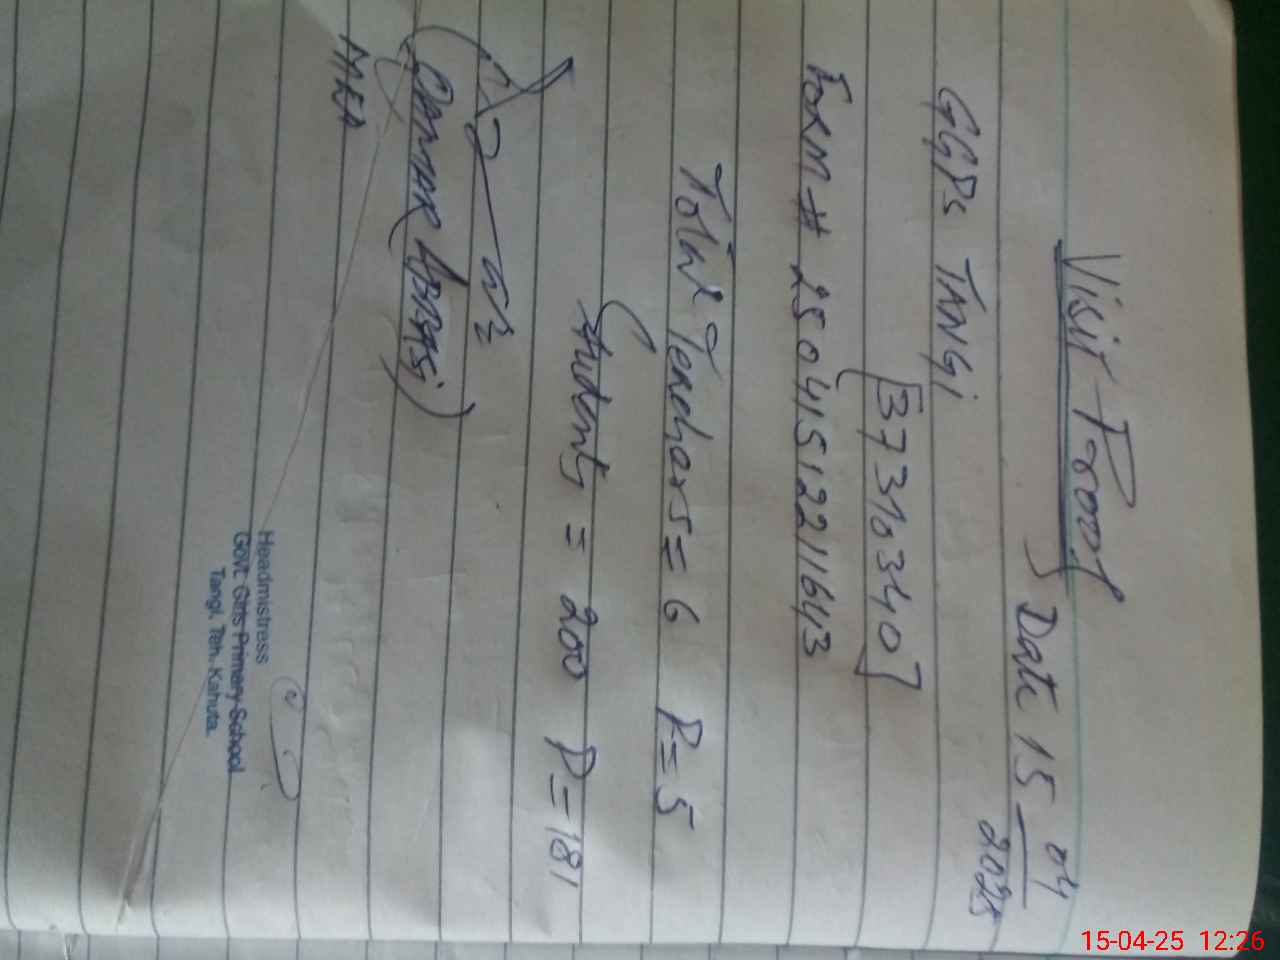 Visit Proof
Date 15 04 2025
GGPS TANGi
[37310340]
Form # 250415122111643
Total Teachers = 6 P = 5
Students = 200 P = 181
Abbasi)
MEA
Headmistress
Govt. Girls Primary School
Tangi, Teh. Kahuta.
15-04-25 12:26